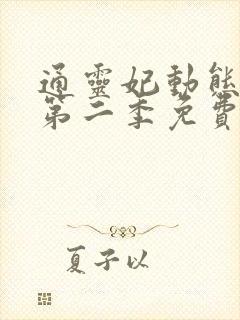 通靈妃動態
第二季免費
夏子以